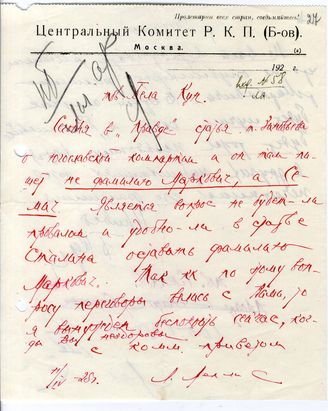 Пролетарии всех стран, соединяйтесь!
27
Центральный Комитет Р. К. П. (Б-ов).
Москва.
192 г.
№ 58
тов. Бела Кун.
Сегодня в "Правде" статья т. Зиновьева
о югославской компартии и он там пи-
шет не фамилию Маркович, а Се-
мич. Является вопрос не будет ли
провалом и удобно-ли в статье
Сталина оставать фамилию
Маркович. Так как по этому воп-
росу переговоры велись с Вами, то
я вынужден беспокоить сейчас, ког-
да Вы нездоровы
с комм. приветом
11/IV-25 г.